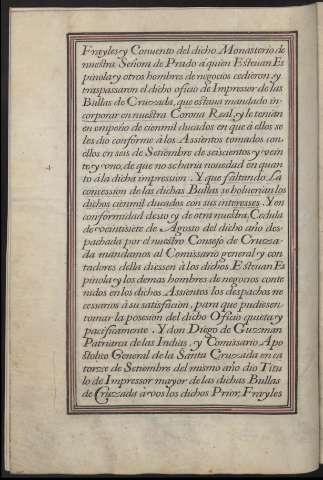 Frayles y Conuento del dicho Monasterio de
nuestra Señora de Prado a quien Esteuan Es
pinola y otros hombres de negocios cedieron, y
traspassaron el dicho oficio de Impressor de las
Bullas de Cruzada, que estaua mandado in-
corporar en nuestra Corona Real, y le tenian
en empeño de cienmil ducados en que à ellos se
les dio conforme à los Assientos tomados con
ellos en seis de Setiembre de seiscientos y vein
te, y vno, de que no se haria nouedad en quan
to à la dicha impression. Y que faltando La
concession de las dichas Bullas se boluerian los
dichos cienmil ducados con sus interesses. Y en
conformidad desto y de otra nuestra Cedula
de veintisiete de Agosto del dicho año des-
pachada por el nuestro Consejo de Cruza-
da mandamos al Comissario general y con
tadores della diessen à los dichos Esteuan Es
pinola y los demas hombres de negocios conte
nidos en los dichos Assientos los despachos ne
cessarios à su satisfacion, para que pudiesen
tomar la posesion del dicho Oficio quieta y
pacificamente. Y don Diego de Guzman
Patriarca de las Indias, y Comissario Apo
stolico General de la Santa Cruzada en ca
torze de Setiembre del mismo año dio Titu
lo de Impressor mayor de las dichas Bullas
de Cruzada à vos los dichos Prior, Frayles